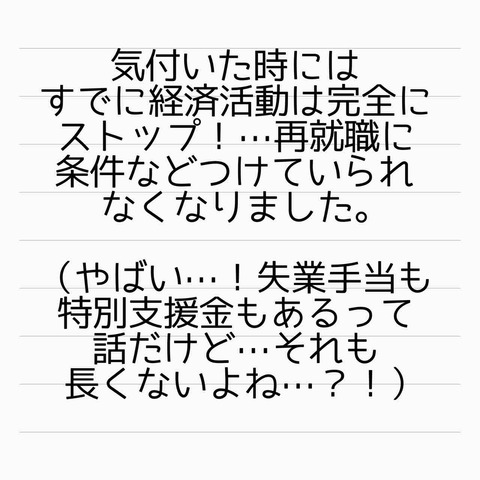 気付いた時には
すでに経済活動は完全に
ストップ！…再就職に
条件などつけていられ
なくなりました。
（やばい…！失業手当も
特別支援金もあるって
話だけど…それも
長くないよね…？！）